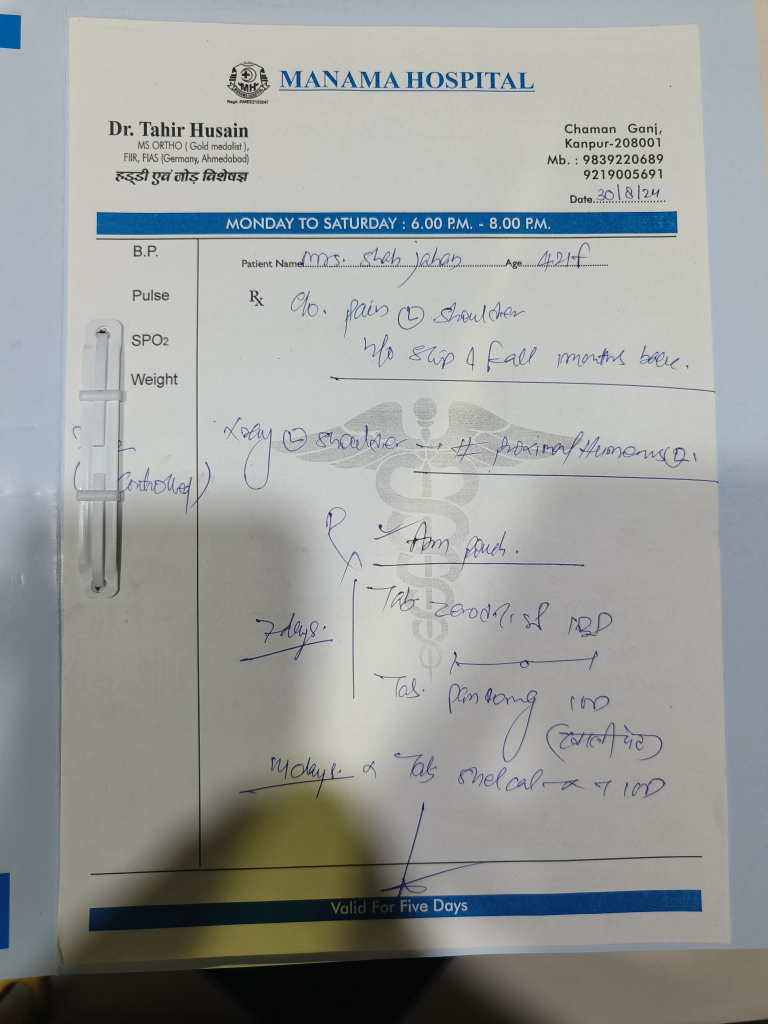 MANAMA HOSPITAL
MH
Dr. Tahir Husain
MS ORTHO ( Gold medalist ),
FIIR, FIAS (Germany, Ahmedabad)
हड्डी एवं जोड़ विशेषज्ञ
Chaman Ganj,
Kanpur-208001
Mb. : 9839220689
9219005691
Date 30/8/24
MONDAY TO SATURDAY : 6.00 P.M. - 8.00 P.M.
B.P.
Pulse
SPO2
Weight
Patient Name Mrs. Shah jahan Age 42/f
Rx c/o. pain (L) shoulder
h/o slip & fall months back.
Xray (L) shoulder # proximal Humerus
Controlled)
Rx Arm pouch.
7 days.
Tab BD
Tab. OD
(खाली पेट)
days. Tab shelcal OD
Valid For Five Days